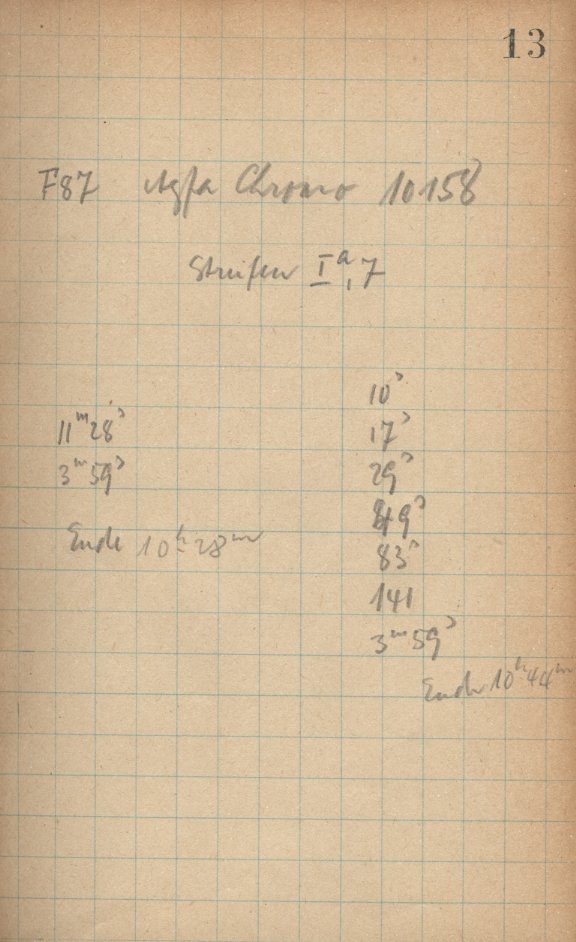 13
F87 Agfa Chromo 10158
Streifen Iᵃ, 7
11ᵐ28ˢ
3ᵐ59ˢ
Ende 10ʰ28ᵐ
10ˢ
17ˢ
29ˢ
49ˢ
83ˢ
141
3ᵐ59ˢ
Ende 10ʰ44ᵐ